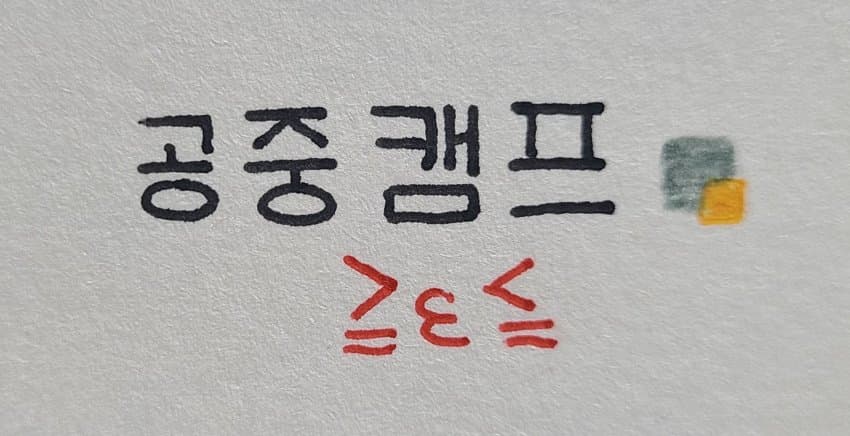 공중캠프
≧ε≦